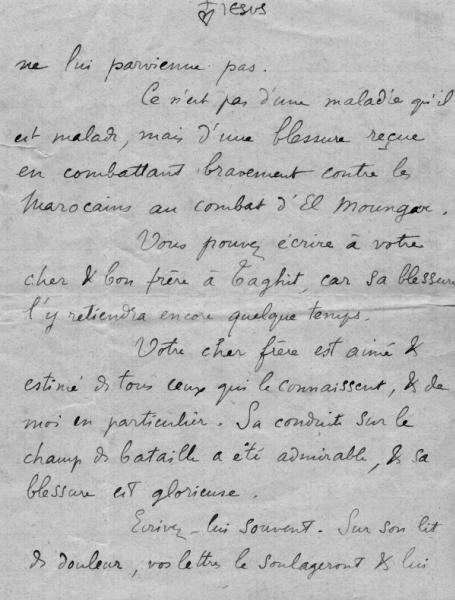 JESUS
ne lui parvienne pas.
Ce n'est pas d'une maladie qu'il
est malade, mais d'une blessure reçue
en combattant bravement contre les
Marocains au combat d'El Moungar.
Vous pouvez écrire à votre
cher & bon frère à Taghit, car sa blessure
l'y retiendra encore quelque temps.
Votre cher frère est aimé &
estimé de tous ceux qui le connaissent, & de
moi en particulier. Sa conduite sur le
champ de bataille a été admirable, & sa
blessure est glorieuse.
Ecrivez-lui souvent. Sur son lit
de douleur, vos lettres le soulageront & lui